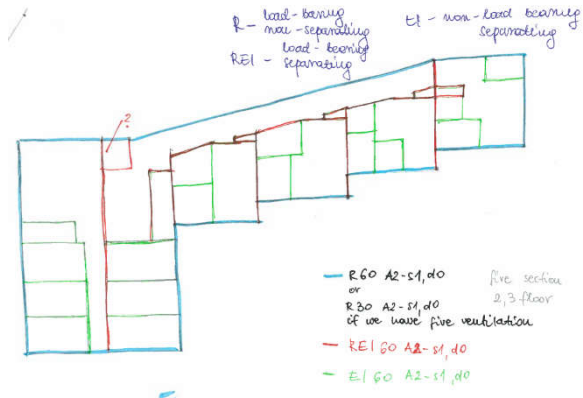 load-baring
R - non-separating
load-bearing
REI - separating
EI - non-load bearing
separating
2
R60 A2-s1,d0
or
R30 A2-s1,d0
if we have fire ventilation
fire section
2,3 floor
REI 60 A2-s1,d0
EI 60 A2-s1,d0